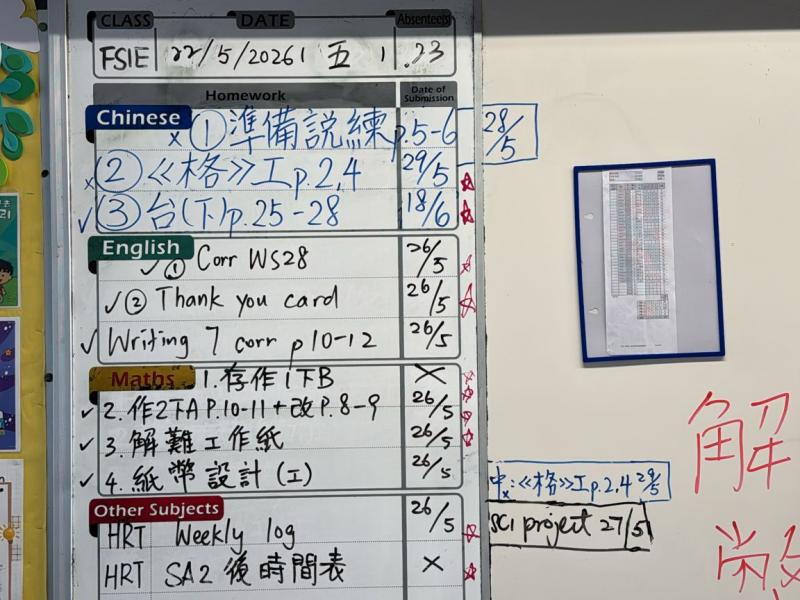 CLASS DATE Absentee(s)
FSIE 22/5/2026 五 1.23
Homework Date of Submission
Chinese
x ① 準備説練 p.5-6 28/5
x ② 《格》工p.2,4 29/5
✓ ③ 台(下)p.25-28 18/6
English
✓ ① Corr WS28 26/5
✓ ② Thank you card 26/5
✓ Writing 7 corr p10-12 26/5
Maths 1. 存作1下B X
✓ 2. 作2下A P.10-11+改P.8-9 26/5
✓ 3. 解難工作紙 26/5
✓ 4. 紙幣設計(工) 26/5
Other Subjects
HRT Weekly log 26/5
HRT SA2 後時間表 X
中x:《格》工p.2,4 29/5
SCI project 27/5
解
散